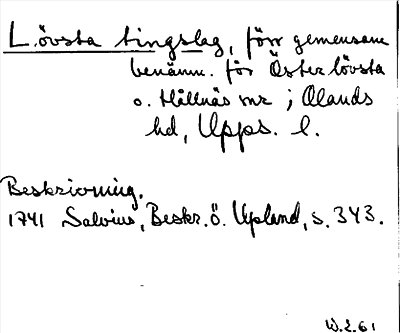 Lövsta tingslag, förr gemensam
benämn. för Österlövsta
o. Hållnäs snr i Olands
hd, Upps. l.
Beskrivning.
1741 Salvius, Beskr. ö. Upland, s. 343.
W.2.61